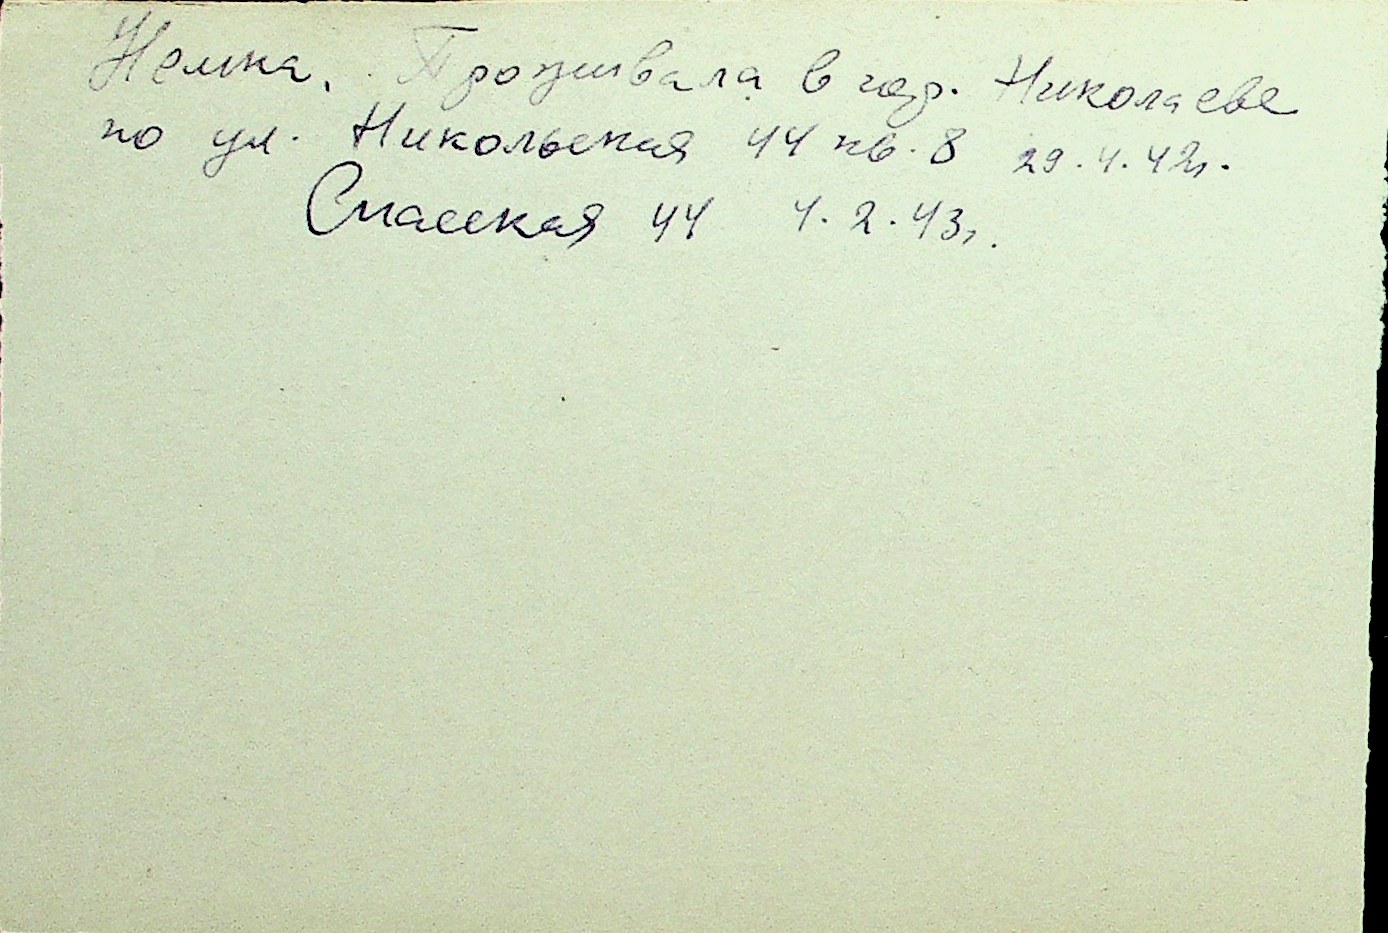 Немка. Проживала в гор. Николаеве
по ул. Никольская 44 кв. 8 29.4.42г.
Спасская 44 4.2.43г.